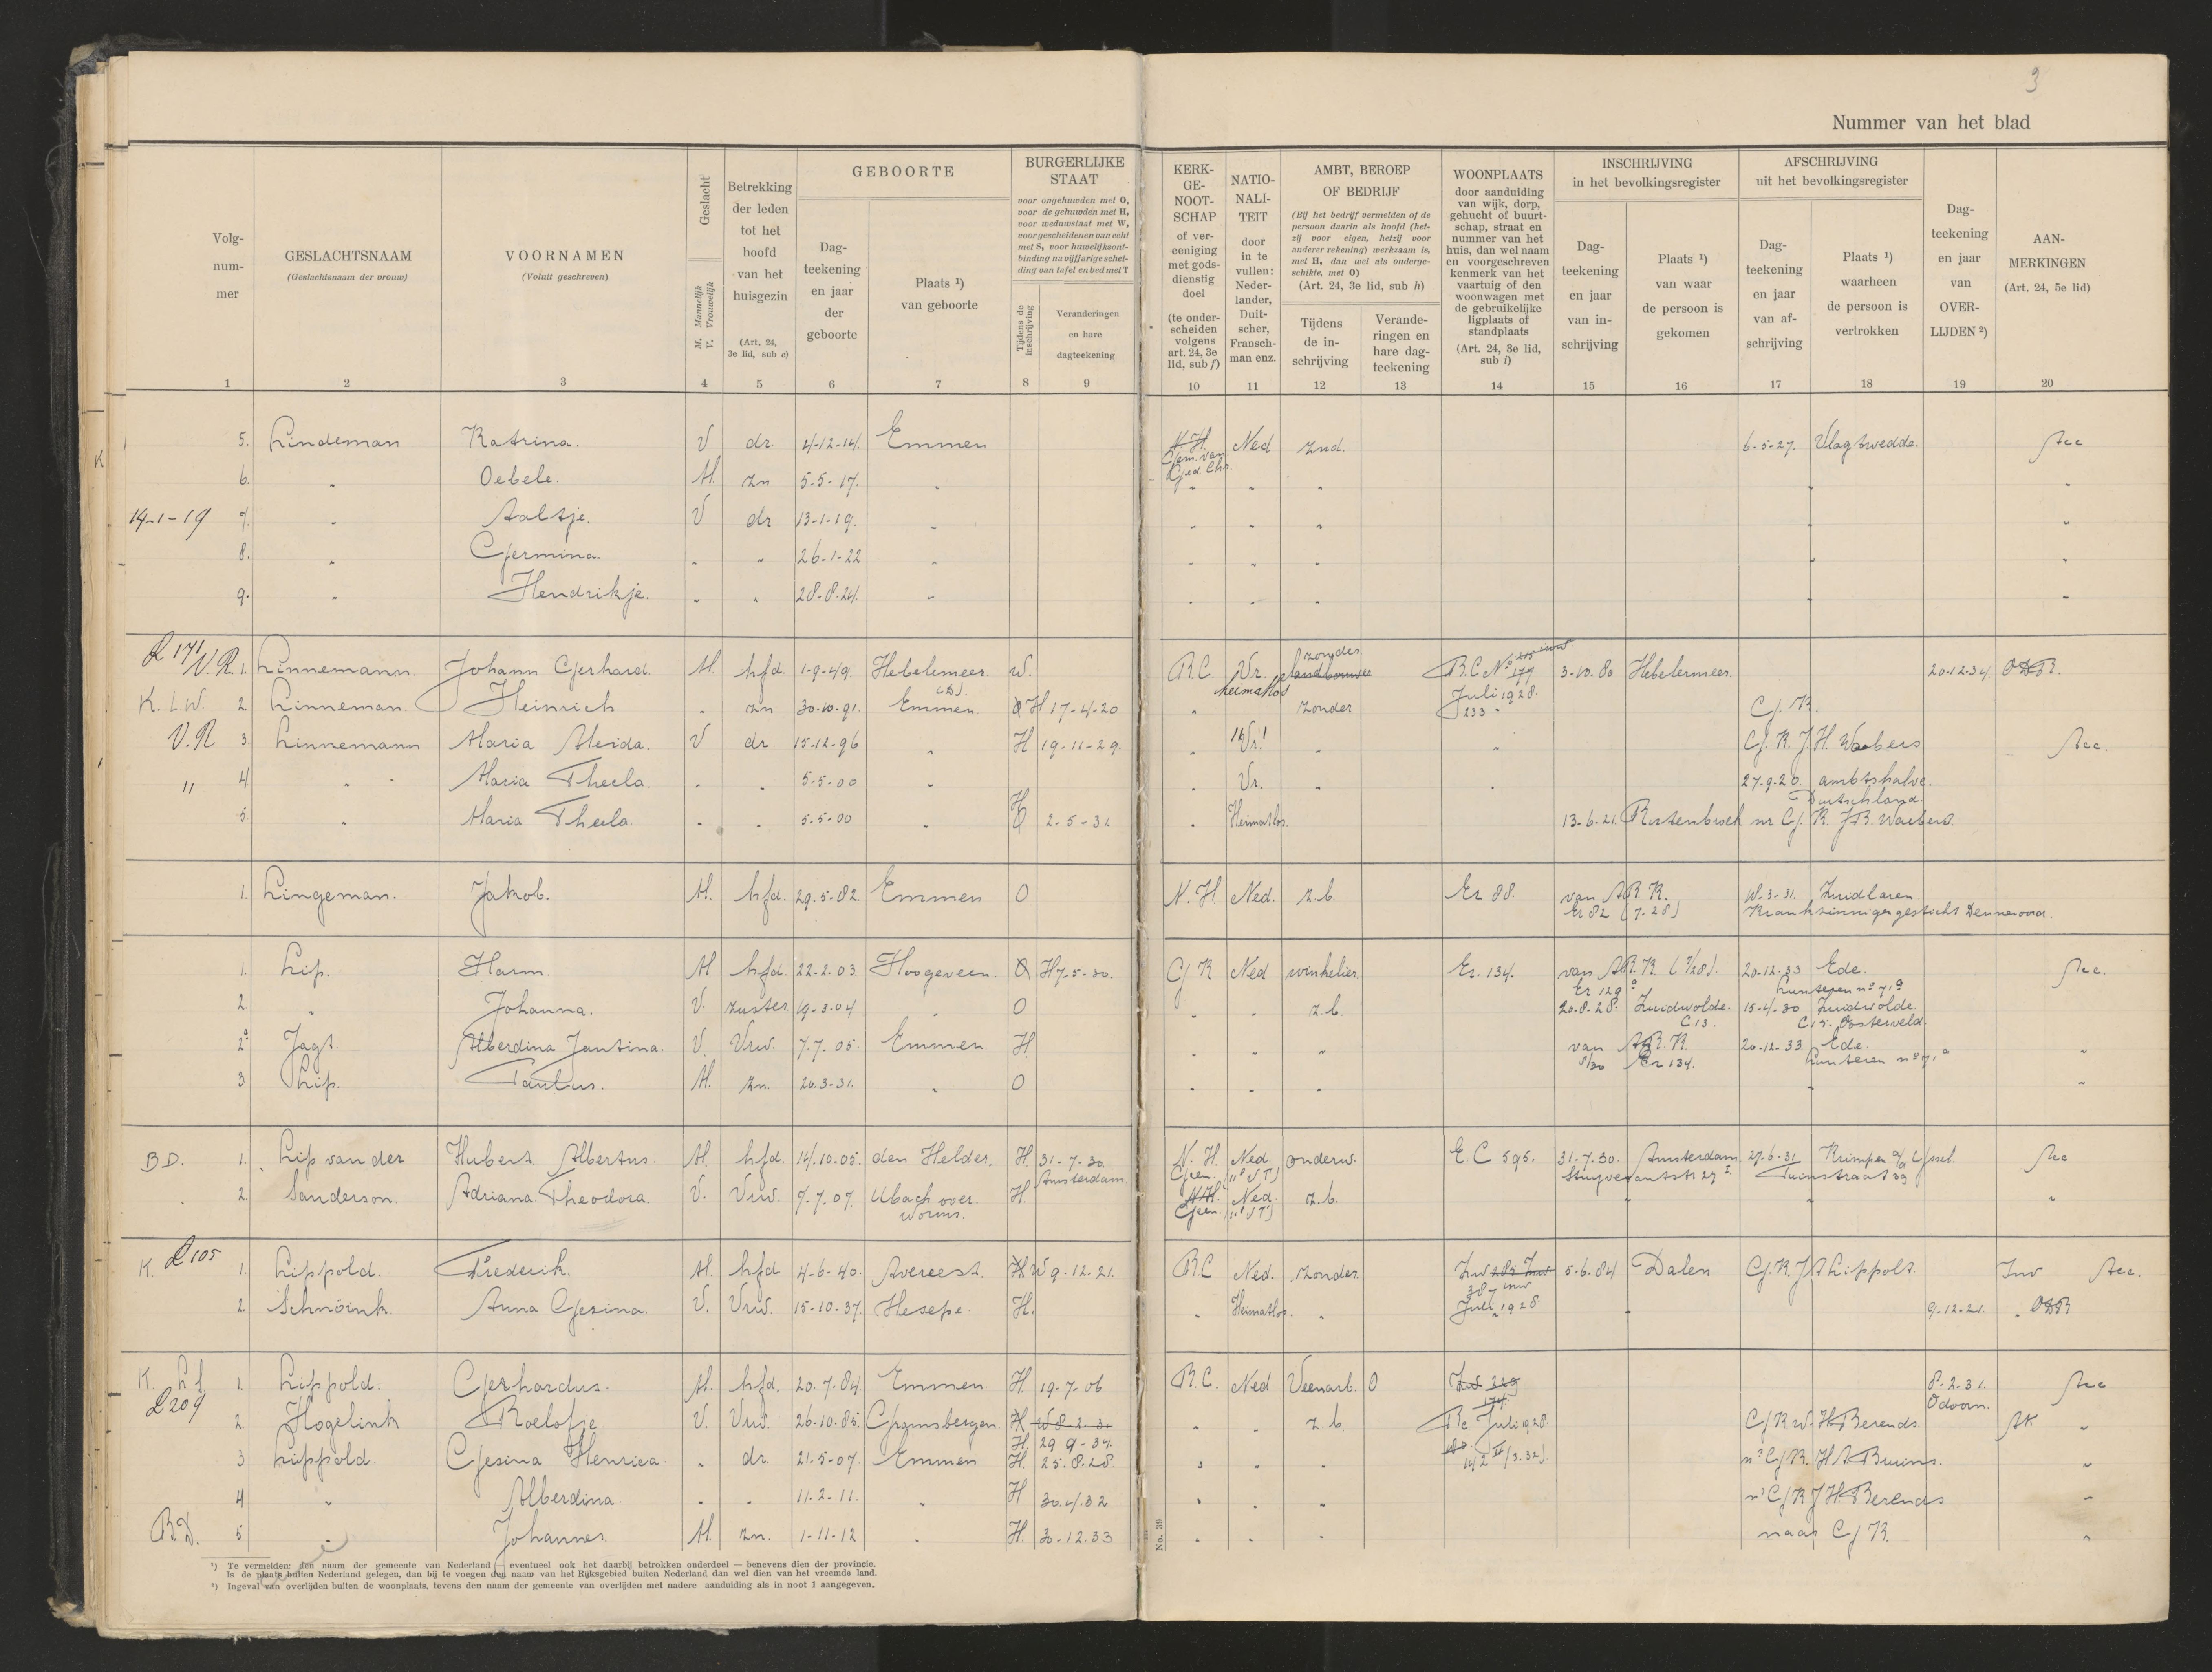 3
Nummer van het blad
Volg-
num-
mer
GESLACHTSNAAM
(Geslachtsnaam der vrouw)
VOORNAMEN
(Voluit geschreven)
Geslacht
M. Mannelijk
V. Vrouwelijk
Betrekking
der leden
tot het
hoofd
van het
huisgezin
(Art. 24,
3e lid, sub e)
GEBOORTE
Dag-
teekening
en jaar
der
geboorte
Plaats ¹)
van geboorte
BURGERLIJKE
STAAT
voor ongehuwden met O,
voor de gehuwden met H,
voor weduwstaat met W,
voor gescheidenen van echt
met S, voor huwelijksont-
binding na vijfjarige schei-
ding van tafel en bed met T
Tijdens de
inschrijving
Veranderingen
en hare
dagteekening
KERK-
GE-
NOOT-
SCHAP
of ver-
eeniging
met gods-
dienstig
doel
(te onder-
scheiden
volgens
art. 24, 3e
lid, sub f)
NATIO-
NALI-
TEIT
door
in te
vullen:
Neder-
lander,
Duit-
scher,
Fransch-
man enz.
AMBT, BEROEP
OF BEDRIJF
(Bij het bedrijf vermelden of de
persoon daarin als hoofd (het-
zij voor eigen, hetzij voor
anderer rekening) werkzaam is,
met H, dan wel als onderge-
schikte, met O)
(Art. 24, 3e lid, sub h)
Tijdens
de in-
schrijving
Verande-
ringen en
hare dag-
teekening
WOONPLAATS
door aanduiding
van wijk, dorp,
gehucht of buurt-
schap, straat en
nummer van het
huis, dan wel naam
en voorgeschreven
kenmerk van het
vaartuig of den
woonwagen met
de gebruikelijke
ligplaats of
standplaats
(Art. 24, 3e lid,
sub i)
INSCHRIJVING
in het bevolkingsregister
Dag-
teekening
en jaar
van in-
schrijving
Plaats ¹)
van waar
de persoon is
gekomen
AFSCHRIJVING
uit het bevolkingsregister
Dag-
teekening
en jaar
van af-
schrijving
Plaats ¹)
waarheen
de persoon is
vertrokken
Dag-
teekening
en jaar
van
OVER-
LIJDEN ²)
AAN-
MERKINGEN
(Art. 24, 5e lid)
1 2 3 4 5 6 7 8 9 10 11 12 13 14 15 16 17 18 19 20
5. Lindeman Katrina. V dr. 4-12-14. Emmen N.H. Ned znd. 6-5-27. Vlagtwedde. Acc
Gem. van
Ged. Chr.
6. " Oebele. M. zn 5-5-17. " " " " " "
14-1-19 7. " Aaltje. V dr 13-1-19. " " " " " "
8. " Germina. " " 26-1-22 " " " " " "
9. " Hendrikje. " " 28-8-24. " " " " " "
L 171
V.R. 1. Linnemann. Johann Gerhard. M. hfd. 1-9-49. Hebelemeer. W. R.C. Vr. zonder landbouwer R.C. No 177 3-10-80 Hebelermeer. 20-12-34.
heimatlos
K. L.W. 2 Linneman. Heinrich. " zn 30-10-91. Emmen. O H 17-4-20 " zonder Juli 1928. G.K.
233 "
V.R 3. Linnemann Maria Aleida. V dr. 15-12-96 " H 19-11-29. " Vr. " " G.K. J.H. Wabers Acc.
" 4 " Maria Thecla. " " 5-5-00 " " Vr. " " 27-9-20. ambtshalve.
Duitschland.
5 " Maria Thecla. " " 5-5-00 " H O 2-5-31 " Heimatlos. 13-6-21. nr G.K. J.B. Wabers.
1. Lingeman. Jakob. M. hfd. 29-5-82. Emmen O N.H. Ned. z.b. Er 88. van A.R.K. 10-3-31. Zuidlaren.
Er 82 (7-28) Krankzinnigengesticht Dennenoord.
1. Lip. Harm. M. hfd. 22-2-03. Hoogeveen. O H 7-5-30. G K Ned winkelier. Er. 134. van A.R.K. (7/28). 20-12-33 Ede. Acc.
Er 129 a Lunteren no 71a
2. " Johanna. V. zuster 19-3-04 " O " " z.b. 20-8-28. Zuidwolde. 15-4-30 Zuidwolde.
C 13. C 15. Oosterveld.
2a Jagt. Alberdina Jantina. V. Vrw. 7-7-05. Emmen. H. " " " van A.R.K. 20-12-33. Ede. "
8/30 Er 134. Lunteren no 71a
3. Lip. Paulus. M. zn. 20-3-31. " O " " " " "
B.D. 1. Lip van der Hubert Albertus. M. hfd. 14-10-05. den Helder. H. 31-7-30. N.H. Ned. onderw. E.C 595. 31-7-30. Amsterdam. 27-6-31. Krimpen a/d IJssel. Acc
Amsterdam Geen. Stuyvesantstr 27 I. Tuinstraat 39
" 2. Sanderson. Adriana Theodora. V. Vrw. 7-7-07. Ubach over H. N.H. Ned. z.b. " " "
Worms. Geen.
L 105
K. 1. Lippold. Frederik. M. hfd 4-6-40. Avereest. H W 9-12-21. R.C Ned. zonder. Zw 285 Zuw 5-6-84 Dalen G.K. J A Lippolt. Inv Acc.
387 inw
2. Schnöink. Anna Gesina. V. Vrw. 15-10-37. Hesepe. H. " Heimatlos. " Juli 1928. " 9-12-21. "
K. L f. 1. Lippold. Gerhardus. M. hfd. 20-7-84. Emmen H 19-7-06 R.C. Ned Veenarb. O Zw 229 8-2-31. Acc
L 209 Odoorn.
2. Hogelink Roelofje. V. Vrw. 26-10-85. Gramsbergen. H W 8-2-31 " " z.b Rc Juli 1928. G.K.w. H Berends. AK "
H. 29-9-34.
3 Lippold. Gesina Henrica. " dr. 21-5-07. Emmen H 25-8-28. " " " nr G.K. H A Bruins. "
4 " Alberdina. " " 11-2-11. " H 30-4-32 " " " nr G K J H Berends "
B.D. 5 " Johannes. M. zn. 1-11-12 " H. 30-12-33 " " " naar G K "
No. 39
¹) Te vermelden: den naam der gemeente van Nederland — eventueel ook het daarbij betrokken onderdeel — benevens dien der provincie.
Is de plaats buiten Nederland gelegen, dan bij te voegen den naam van het Rijksgebied buiten Nederland dan wel dien van het vreemde land.
²) Ingeval van overlijden buiten de woonplaats, tevens den naam der gemeente van overlijden met nadere aanduiding als in noot 1 aangegeven.